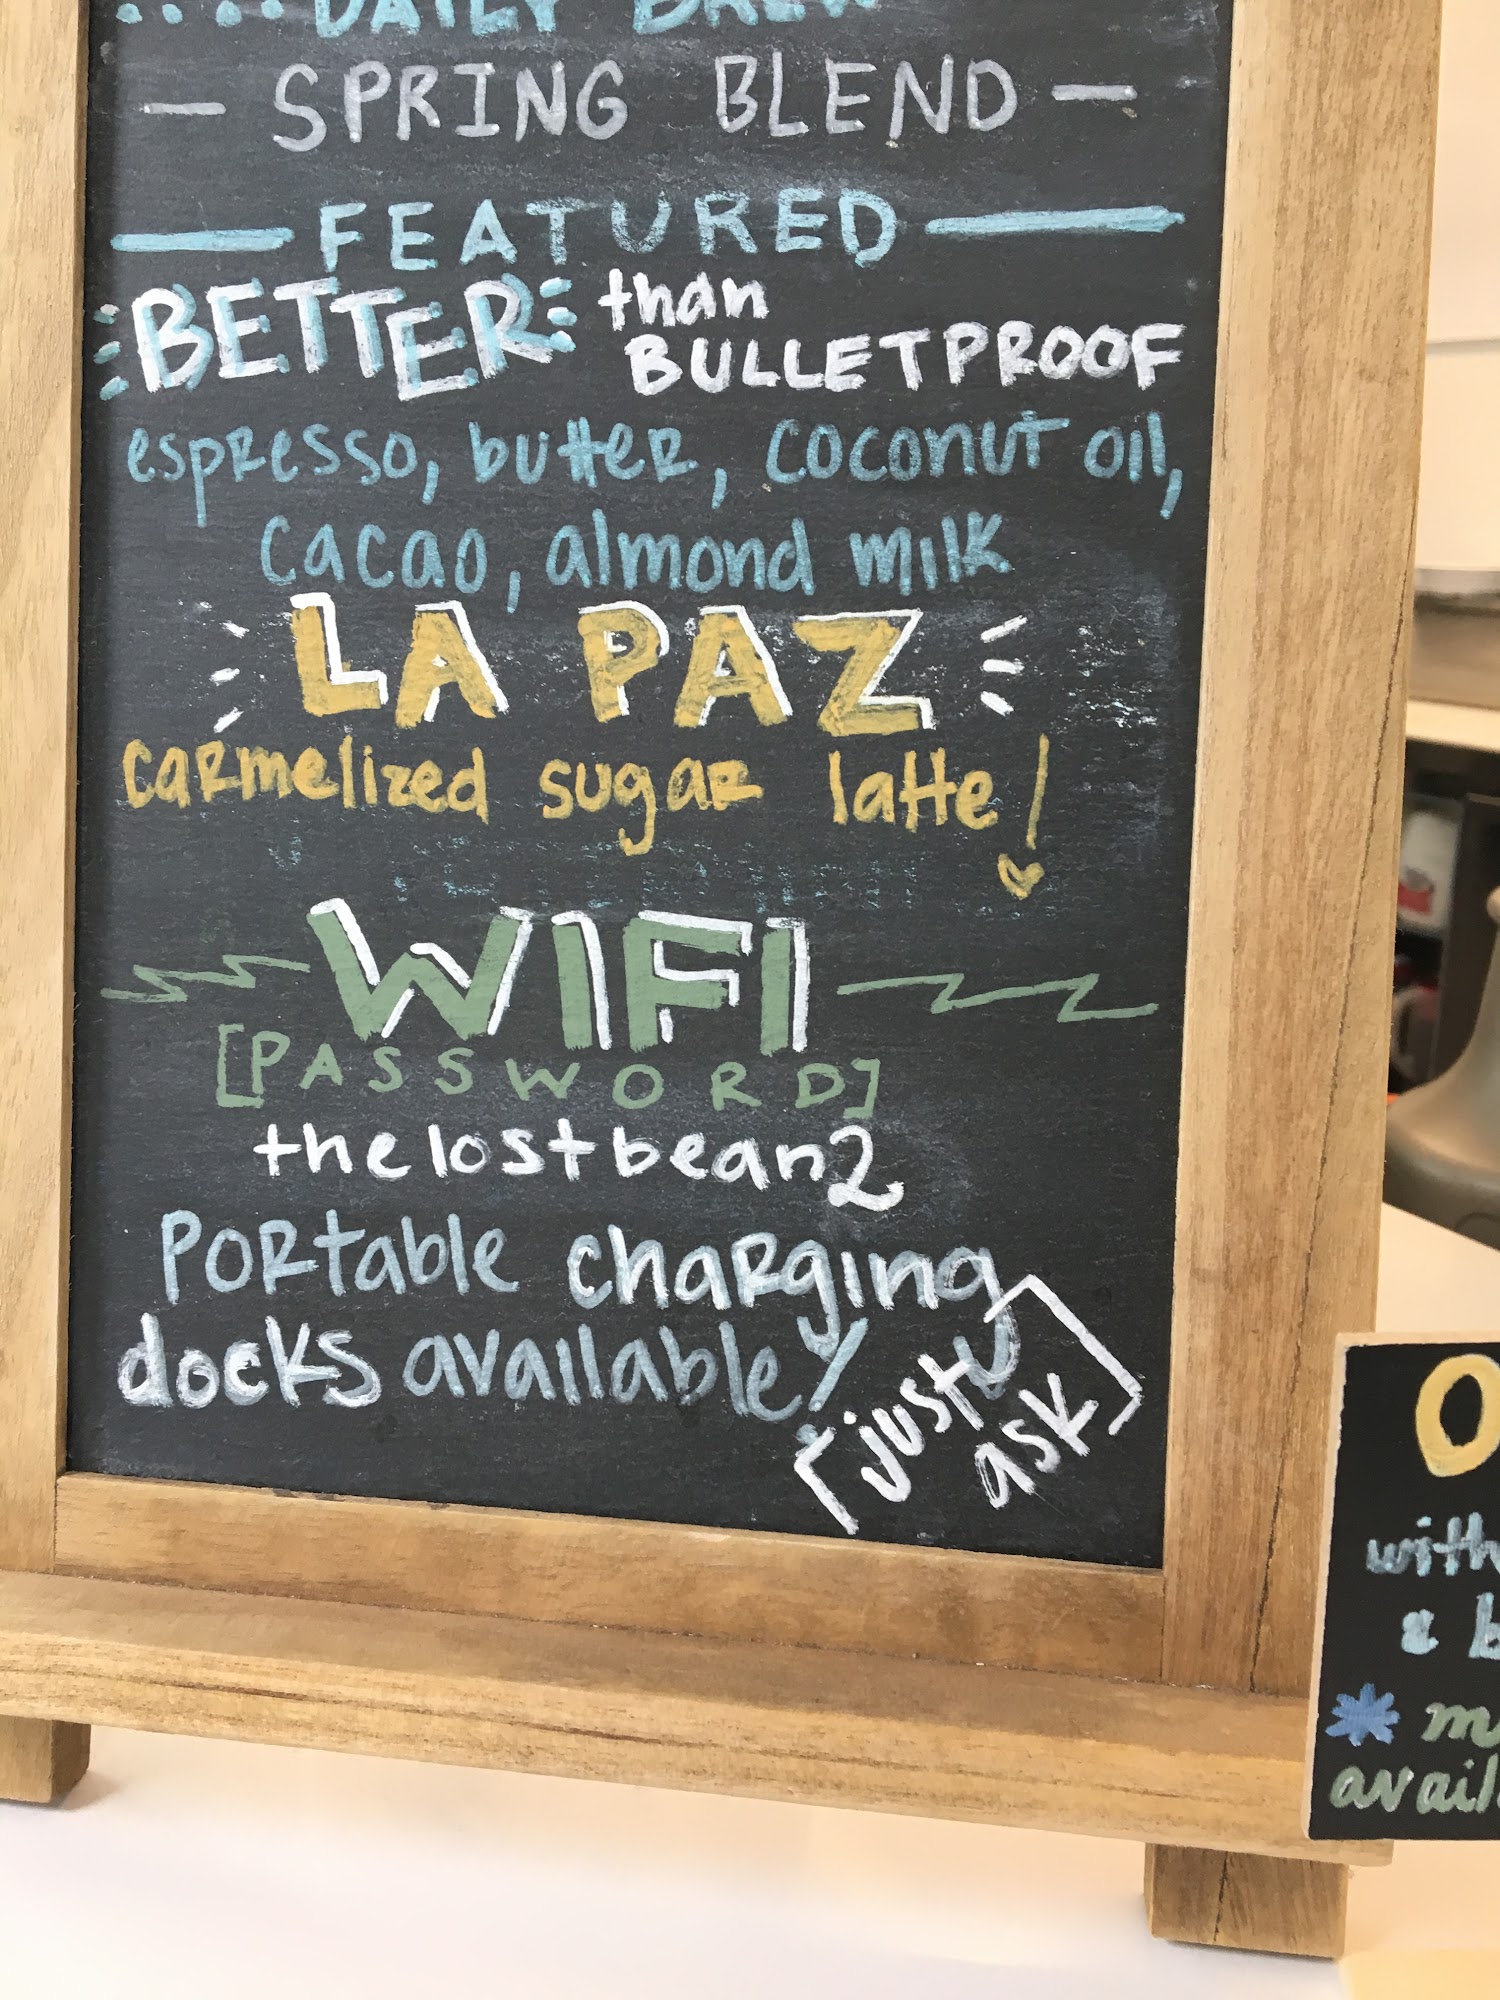 DAILY BREW
— SPRING BLEND —
FEATURED
BETTER than
BULLETPROOF
espresso, butter, coconut oil,
cacao, almond milk
LA PAZ
carmelized sugar latte!
WIFI
[PASSWORD]
thelostbean2
Portable charging
docks available!
[just
ask]
O
with
& b
* m
avail